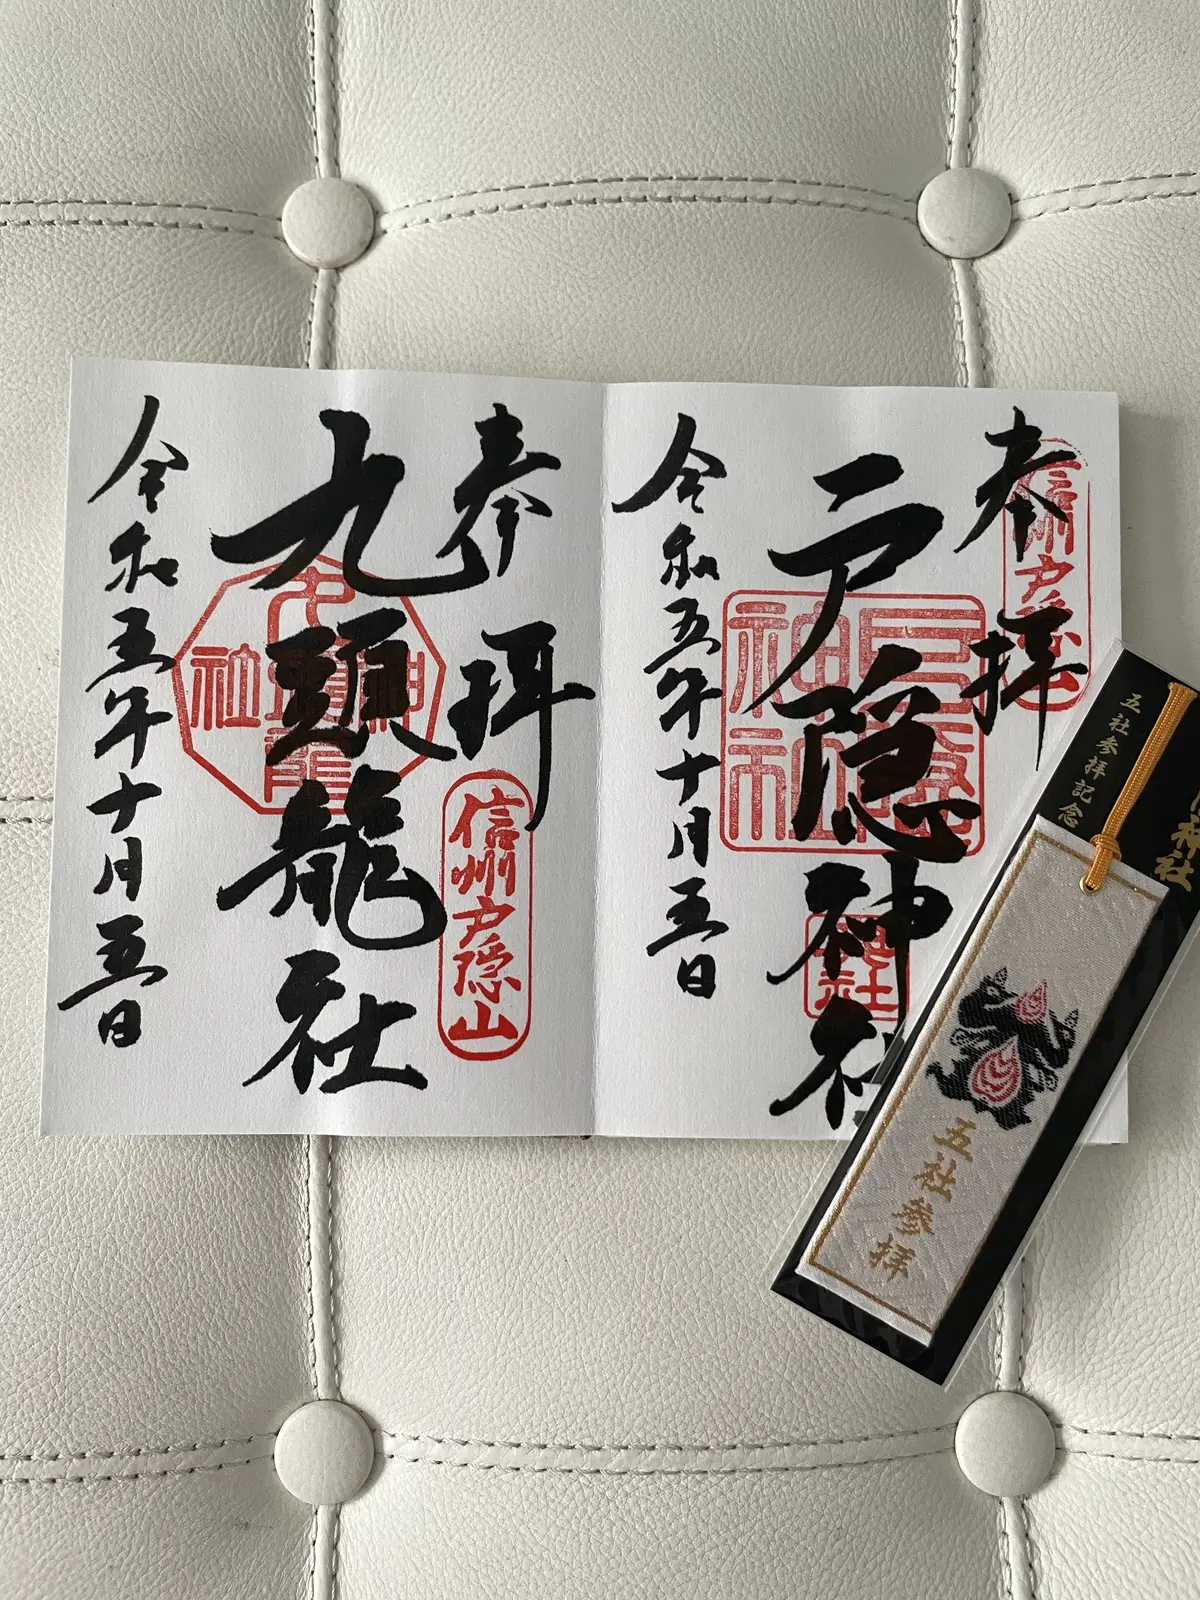 奉拝
信州戸隠
戸隠神社
令和五年十月五日
奉拝
信州戸隠山
九頭龍社
九頭龍神社
令和五年十月五日
神社
五社参拝記念
五社参拝